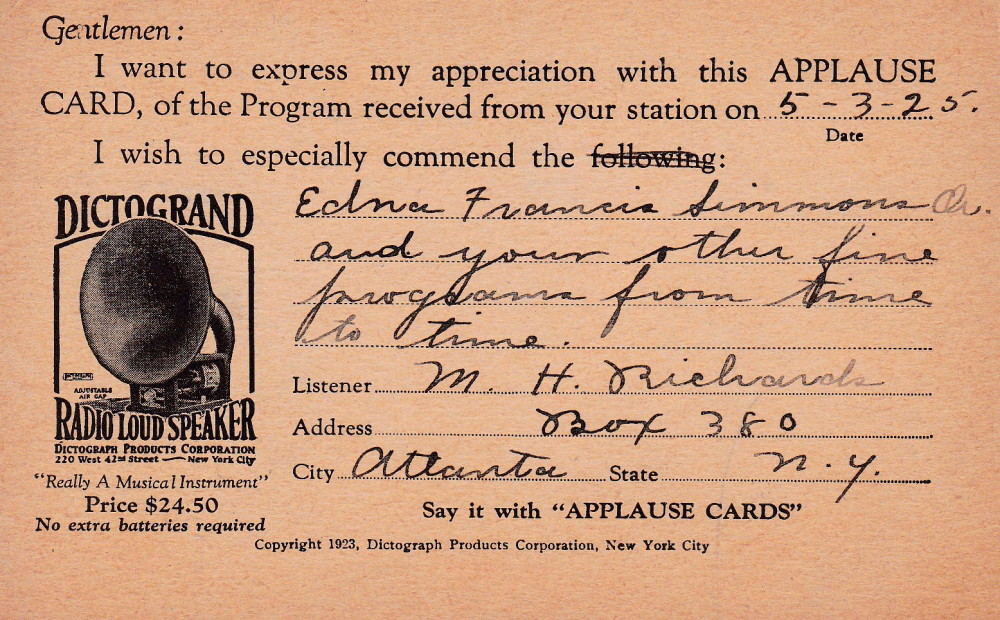 Gentlemen:
I want to express my appreciation with this APPLAUSE
CARD, of the Program received from your station on 5-3-25.
Date
I wish to especially commend the following:
Edna Francis Simmons Or.
and your other fine
programs from time
to time.
Listener M. H. Richards
Address Box 380
City Atlanta State N.Y.
DICTOGRAND
ADJUSTABLE
AIR GAP
RADIO LOUD SPEAKER
DICTOGRAPH PRODUCTS CORPORATION
220 West 42nd Street — New York City
"Really A Musical Instrument"
Price $24.50
No extra batteries required
Say it with "APPLAUSE CARDS"
Copyright 1923, Dictograph Products Corporation, New York City